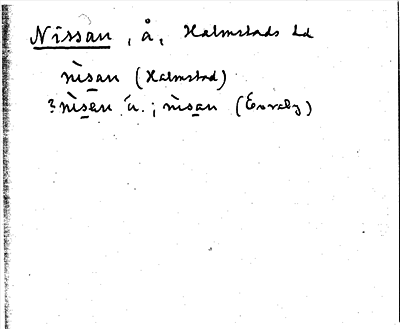 Nissan, å, Halmstads hd
nìsan (Halmstad)
?nìsen ä.; nìsan (Enslöv)